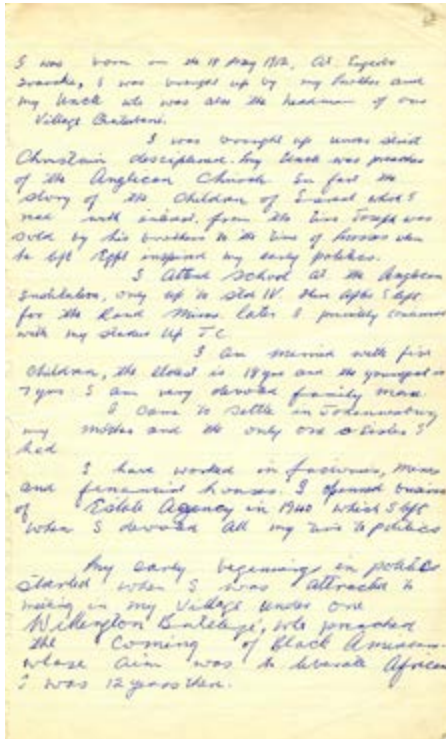 I was born on the 18 May 1912, At. Engcobo
Transkei, I was brought up by my brother and
my Uncle who was also the headman of our
Village
I was brought up under strict
Christain disciplined. My Uncle was preacher
of the Anglican Church In fact the
story of the Children of Israel which I
read with interest. from the time Joseph was
sold by his brothers to the time of when
he left inspired my early politics.
I Attend School at the Anglican
only up to Std IV. then After I left
for the Rand Mines. later I privately continued
with my studies Up J.C.
I am married with five
Children, the eldest is 18 yrs and the youngest is
7 yrs I am very devoted family man.
I came to settle in
my mother and the only one sister I
had
I have worked in factories, Mines
and financial houses. I opened business
of Estate Agency in 1940 which I left
when I devoted All my time to politics
My early beginings in politics
started when I was attracted to
meeting in my Village under one
Wellington who preached
the Coming of Black
whose aim was to liberate African
I was 12 years then.